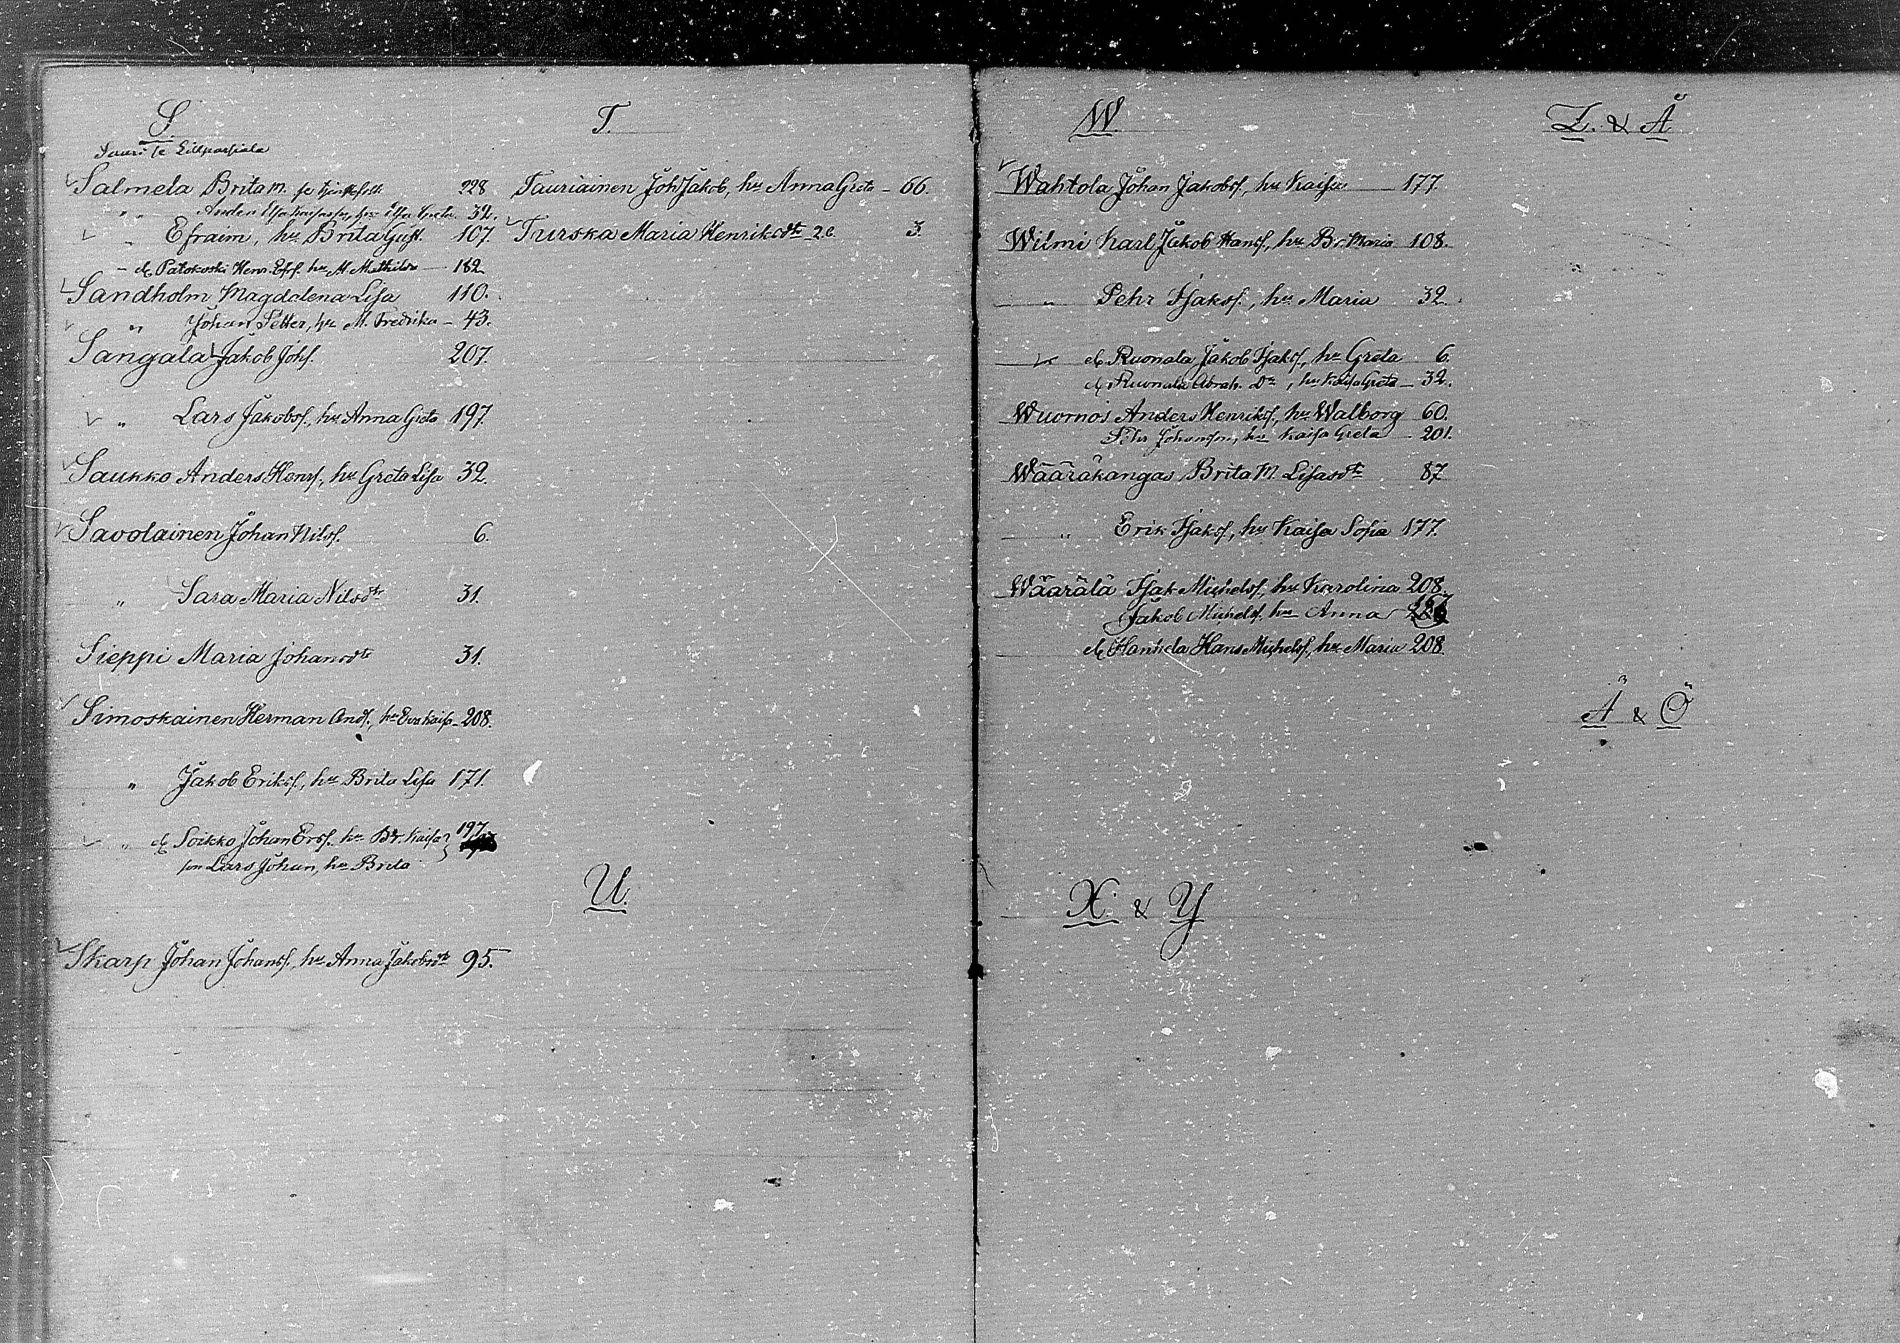 S.
Sauri se Lillparpiala
Salmela Brita M. se 228
" " Anders Isa Kaisasson, hu Elsa Greta 32.
" Efraim, hu Brita Gust. 107.
" & Patokoski Henr. Efr. hu M. Mathilda 182
Sandholm Magdalena Lisa 110.
" Johan Petter, hu M. Fredrika 43.
Sangala Jakob Johs. 207.
" Lars Jakobss., hu Anna Greta 197.
Saukko Anders Henrs., hu Greta Lisa 32.
Savolainen Johan Nilss. 6.
" Sara Maria Nilsdtr 31.
Sieppi Maria Johansdtr 31.
Simoskainen Herman Ands., hu Eva Kaisa 208.
" Jakob Erikss., hu Brita Lisa 171.
" & Soikko Johan Erss. hu Br. Kaisa } 197
son Lars Johan, hu Brita
Skarp Johan Johanss., hu Anna Jakobsdtr 95.
T.
Tauriainen Joh Jakob, hu Anna Greta 66.
Turska Maria Henriksdtr 3.
U.
W.
Wahtola Johan Jakobss., hu Kaisa 177.
Wilmi Karl Jakob Hanss., hu Br. Maria 108.
" Pehr Isakss., hu Maria 32.
" & Ruonala Jakob Isakss., hu Greta 6.
& Ruonala Abrah. Do, hu Kaisa Greta 32.
Wuornos Anders Henrikss., hu Walborg 60.
Pehr Johansson, hu Kaisa Greta 201.
Wääräkangas Brita M. Lisasdtr 87.
" Erik Isakss., hu Kaisa Sofia 177.
Wäärälä Isak Michelss., hu Karolina 208.
Jakob Michelss. hu Anna
& Hanhela Hans Michelss., hu Maria 208.
X. & Y
Z. & Å
Ä & Ö